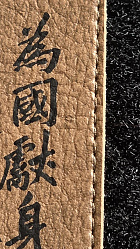 為國獻身